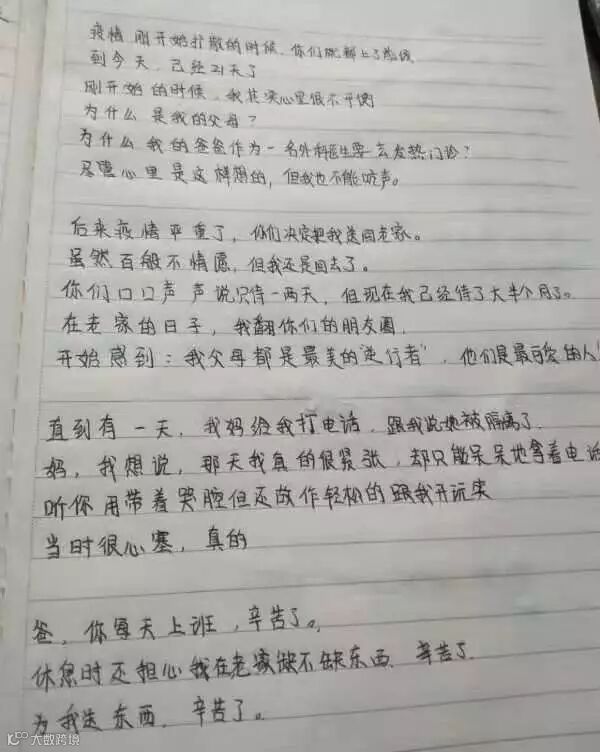 疫情刚开始扩散的时候，你们就都上了前线
到今天，已经21天了
刚开始的时候，我其实心里很不平衡
为什么是我的父母？
为什么我的爸爸作为一名外科医生要去发热门诊？
尽管心里是这样想的，但我也不能吭声。
后来疫情严重了，你们决定把我送回老家。
虽然百般不情愿，但我还是回去了。
你们口口声声说只待一两天，但现在我已经待了大半个月了。
在老家的日子，我翻你们的朋友圈，
开始感到：我父母都是最美的“逆行者”，他们是最可爱的人！
直到有一天，我妈给我打电话，跟我说她被隔离了。
妈，我想说，那天我真的很紧张，却只能呆呆地拿着电话
听你用带着哭腔但还故作轻松的跟我开玩笑
当时很心塞，真的
爸，你每天上班，辛苦了。
休息时还担心我在老家缺不缺东西，辛苦了
为我送东西，辛苦了。
大数跨境